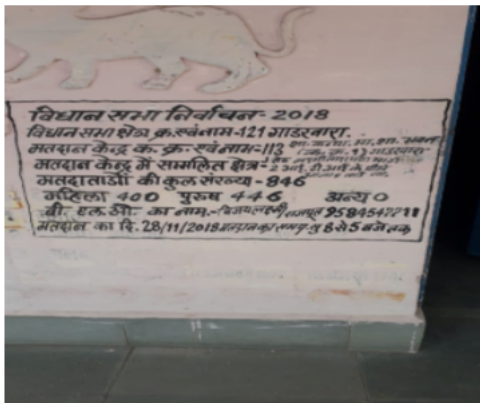 विधान सभा निर्वाचन- 2018
विधान सभा क्षेत्र क्र. एवं नाम-121 गाडरवारा.
मतदान केन्द्र क. क्र. एवं नाम-113
मतदान केन्द्र में सम्मलित क्षेत्र-
मतदाताओं की कुल संख्या - 846
महिला 400 पुरुष 446 अन्य 0
बी. एल.ओ. का नाम- 9584542211
मतदान का दि. 28/11/2018 मतदान का समय 8 से 5 बजे तक